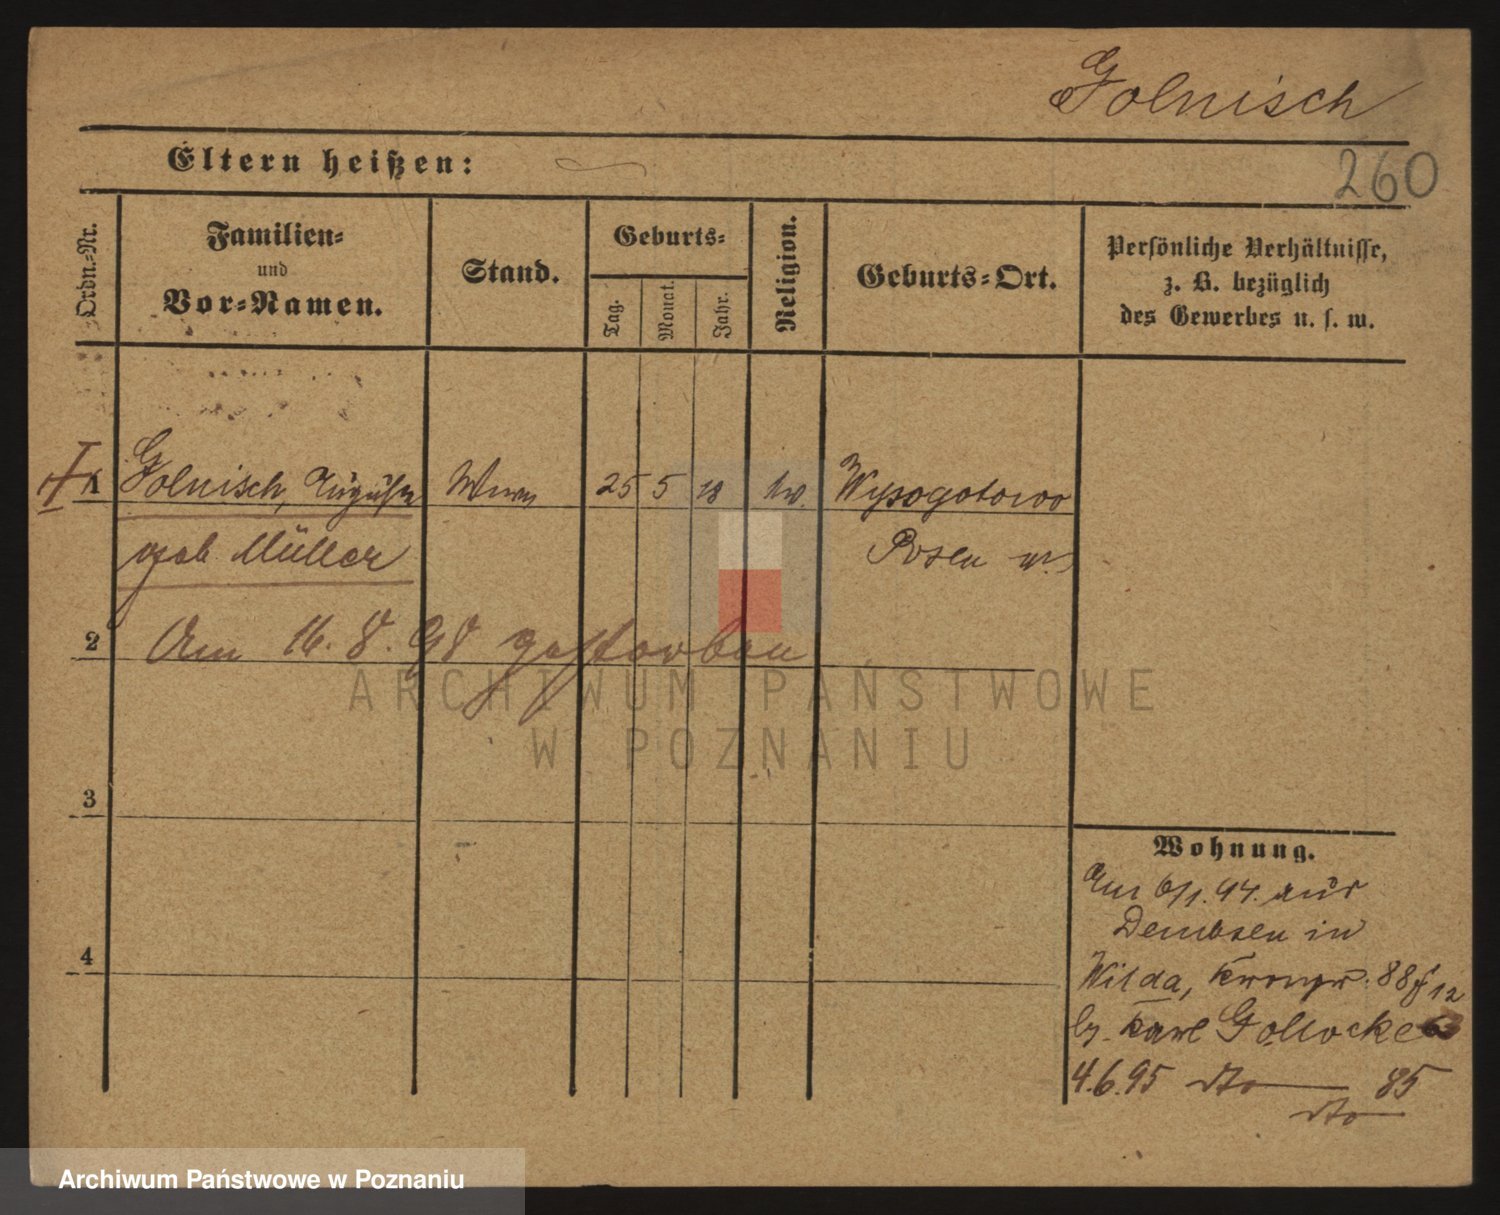 Golnisch
260
Eltern heißen:
Ordn.-Nr.
Familien-
und
Vor-Namen.
Stand.
Geburts-
Tag.
Monat.
Jahr.
Religion.
Geburts-Ort.
Persönliche Verhältnisse,
z. B. bezüglich
des Gewerbes u. s. w.
1 Golnisch, Auguste 25 5 18 Wysogotowo
geb Müller Posen W.
2 Am 16. 8. 98 gestorben
3
4
Wohnung.
Am 6/1. 94. aus
Dembsen in
Wilda, Kronpr. 88
b. Karl Gollocke
4.6.95 dto 85
dto
ARCHIWUM PAŃSTWOWE
W POZNANIU
Archiwum Państwowe w Poznaniu